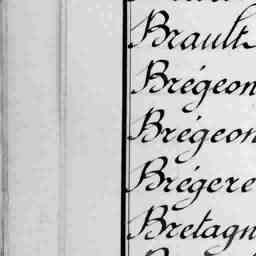 Brault
Brégeon
Brégeon
Brégere
Bretagn